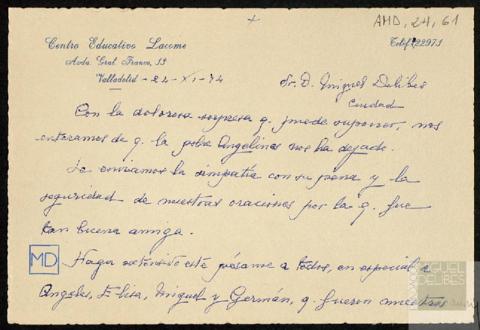 AMD, 24, 61
Centro Educativo Lacome
Avda. Gral. Franco, 13
Teléf. 22971
Valladolid - 24 - XI - 74
Sr. D. Miguel Delibes
Ciudad
Con la dolorosa sorpresa q. puede suponer, nos
enteramos de q. la pobre Angelines nos ha dejado.
Le enviamos la simpatía con su pena y la
seguridad de nuestras oraciones por la q. fue
tan buena amiga.
MD
Haga extensivo este pésame a todos, en especial a
Angeles, Elisa, Miguel y Germán, q. fueron nuestros
MIGUEL
DELIBES